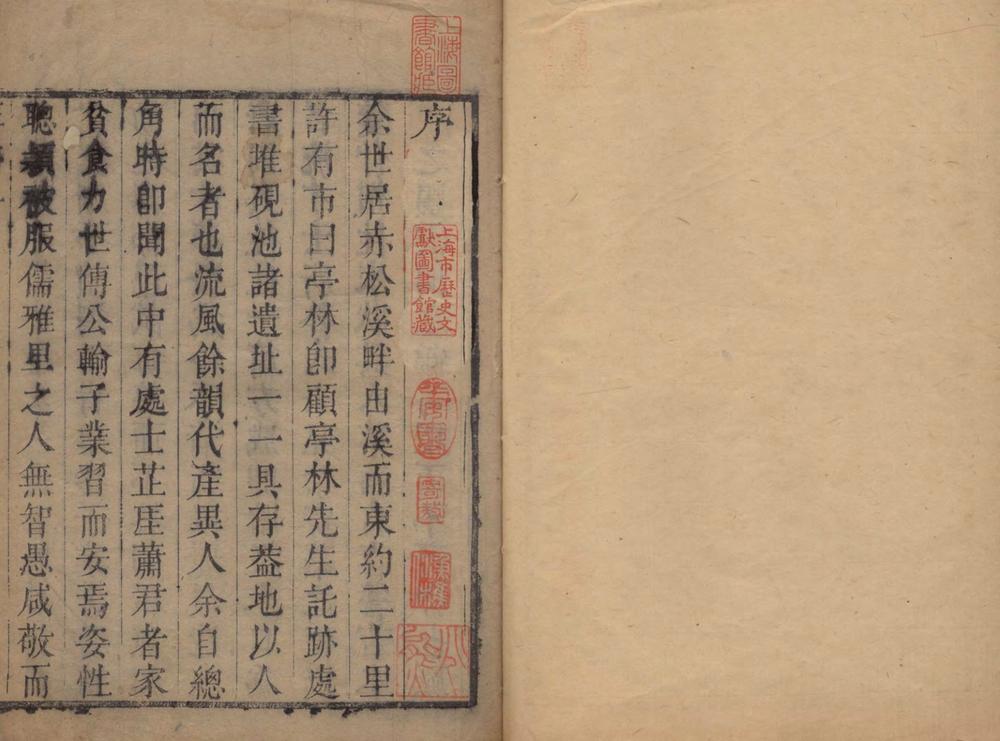 序
余世居赤松溪畔由溪而東約二十里
許有市曰亭林卽顧亭林先生託跡處
書堆硯池諸遺址一一具存葢地以人
而名者也流風餘韻代產異人余自總
角時卽聞此中有處士芷厓蕭君者家
貧食力世傳公輸子業習而安焉姿性
聰穎被服儒雅里之人無智愚咸敬而
上海圖
書館
上海市歷史文
獻圖書館藏